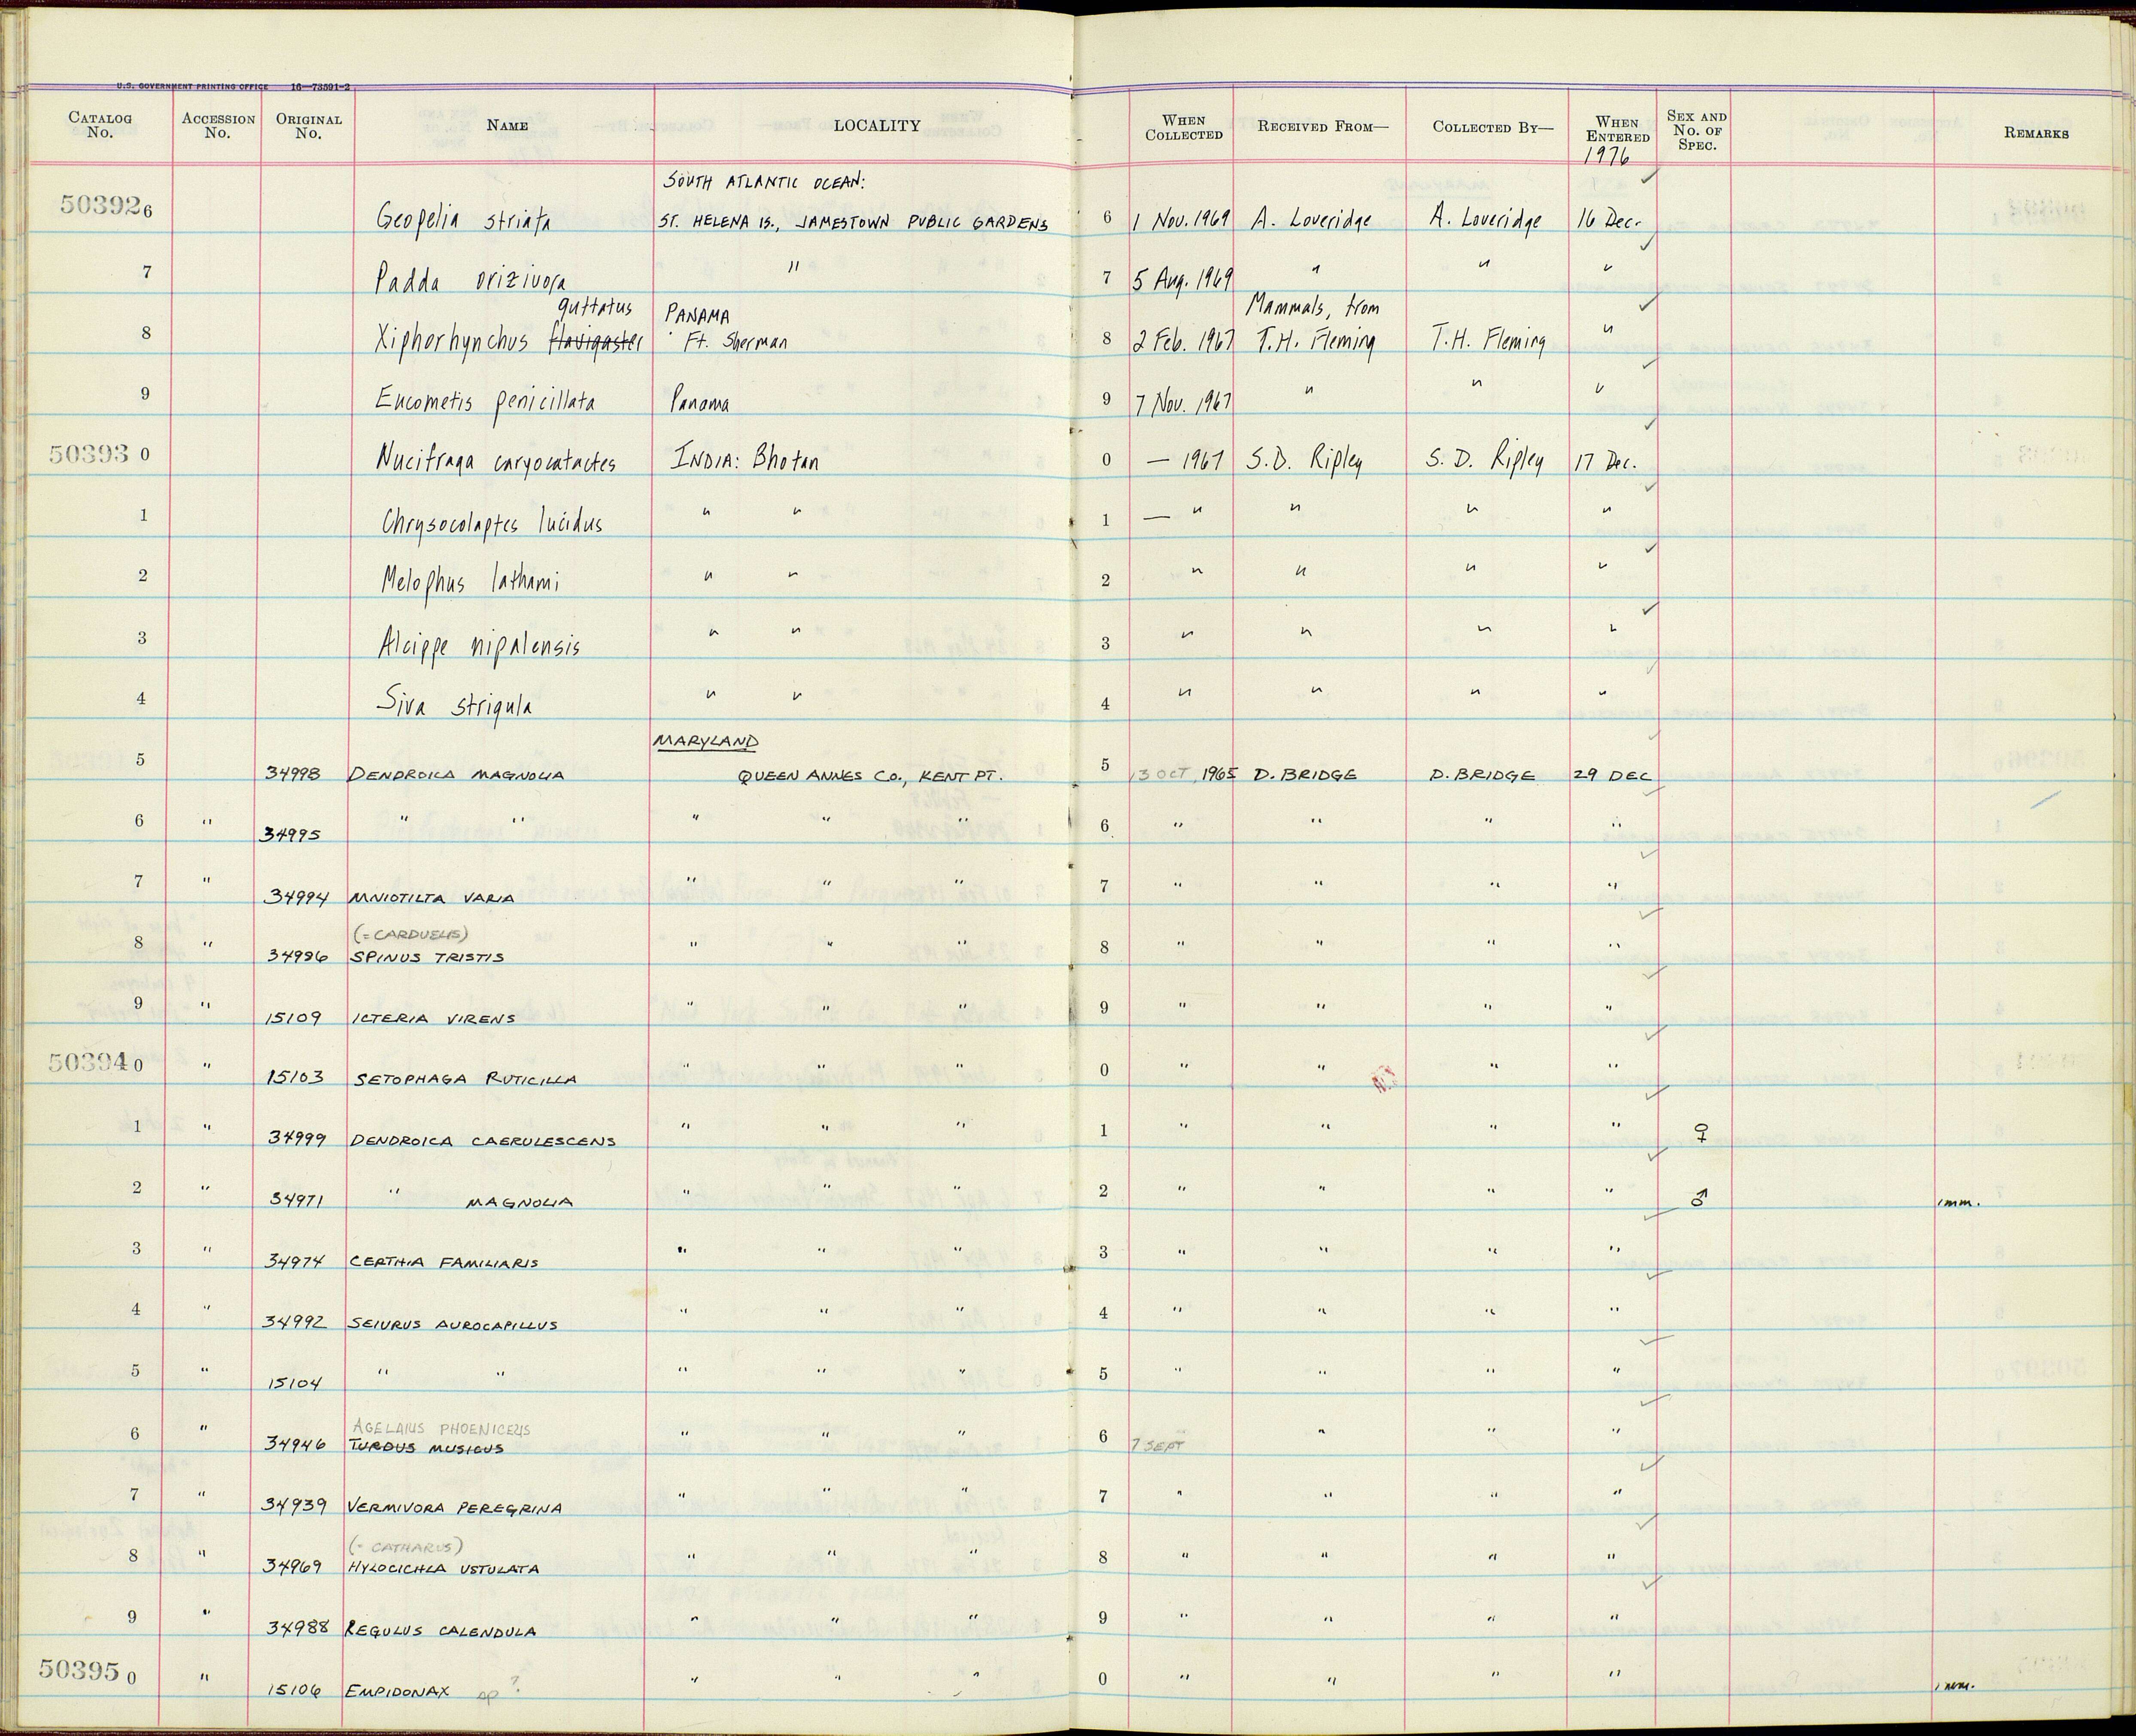 U.S. GOVERNMENT PRINTING OFFICE 16—73591-2
CATALOG No. ACCESSION No. ORIGINAL No. NAME LOCALITY WHEN COLLECTED RECEIVED FROM— COLLECTED BY— WHEN ENTERED SEX AND No. OF SPEC. REMARKS
1976
SOUTH ATLANTIC OCEAN:
503926 Geopelia striata ST. HELENA IS., JAMESTOWN PUBLIC GARDENS 6 1 Nov. 1969 A. Loveridge A. Loveridge 16 Dec. ✓
7 Padda orizivora " 7 5 Aug. 1969 " " " ✓
guttatus PANAMA Mammals, from
8 Xiphorhynchus flavigaster Ft. Sherman 8 2 Feb. 1967 T.H. Fleming T.H. Fleming " ✓
9 Eucometis penicillata Panama 9 7 Nov. 1967 " " " ✓
503930 Nucifraga caryocatactes INDIA: Bhotan 0 — 1967 S.D. Ripley S.D. Ripley 17 Dec. ✓
1 Chrysocolaptes lucidus " " 1 — " " " " ✓
2 Melophus lathami " " 2 " " " " ✓
3 Alcippe nipalensis " " 3 " " " " ✓
4 Siva strigula " " 4 " " " " ✓
MARYLAND
5 34998 DENDROICA MAGNOLIA QUEEN ANNES CO., KENT PT. 5 13 OCT, 1965 D. BRIDGE D. BRIDGE 29 DEC ✓
6 " 34995 " " " " " 6 " " " " ✓
7 " 34994 MNIOTILTA VARIA " " " 7 " " " " ✓
(= CARDUELIS)
8 " 34996 SPINUS TRISTIS " " " 8 " " " " ✓
9 " 15109 ICTERIA VIRENS " " " 9 " " " " ✓
503940 " 15103 SETOPHAGA RUTICILLA " " " 0 " " " " ✓
1 " 34999 DENDROICA CAERULESCENS " " " 1 " " " " ✓ ♀
2 " 34971 " MAGNOLIA " " " 2 " " " " ✓ ♂ imm.
3 " 34974 CERTHIA FAMILIARIS " " " 3 " " " " ✓
4 " 34992 SEIURUS AUROCAPILLUS " " " 4 " " " " ✓
5 " 15104 " " " " " 5 " " " " ✓
AGELAIUS PHOENICEUS
6 " 34946 TURDUS MUSICUS " " " 6 7 SEPT " " " " ✓
7 " 34939 VERMIVORA PEREGRINA " " " 7 " " " " ✓
(= CATHARUS)
8 " 34969 HYLOCICHLA USTULATA " " " 8 " " " " ✓
9 " 34988 REGULUS CALENDULA " " " 9 " " " " ✓
503950 " 15106 EMPIDONAX sp ? " " " 0 " " " " imm.